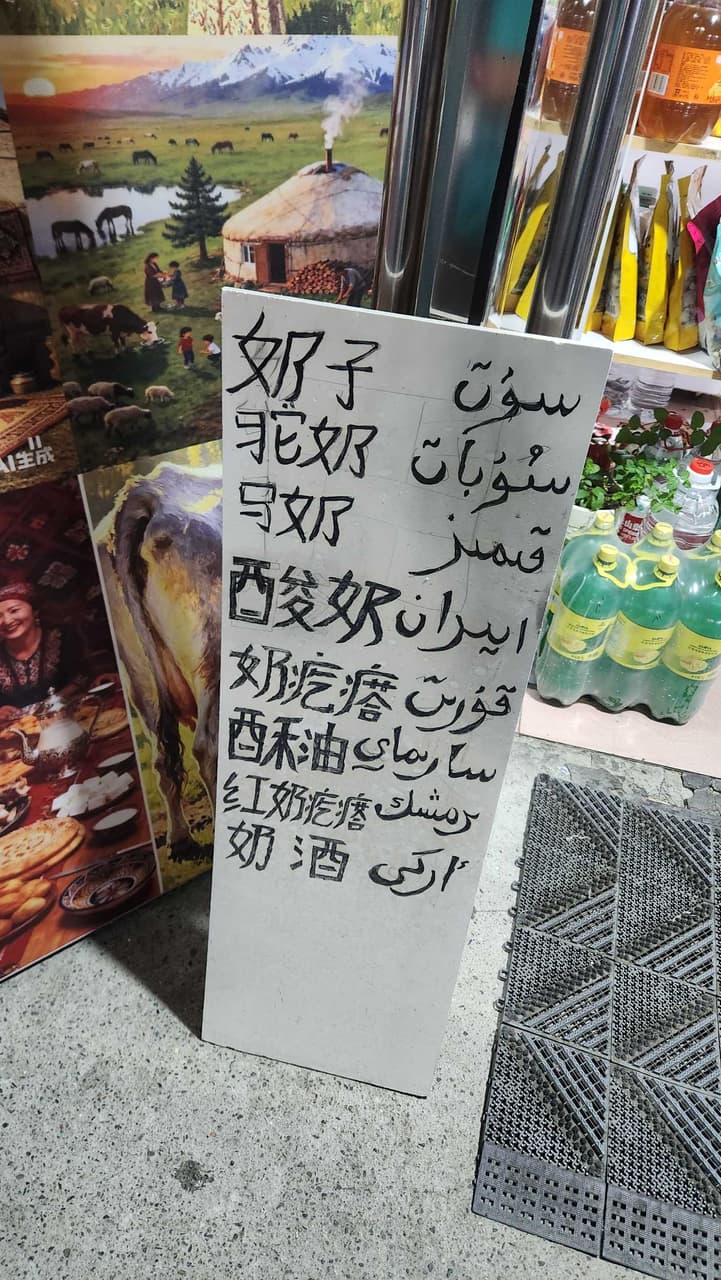 奶子 سۇت
驼奶 شۇبات
马奶 قىمىز
酸奶 ايران
奶疙瘩 قۇرت
酥油 سارىماي
红奶疙瘩 ىرمشىك
奶酒 اركى
AI生成